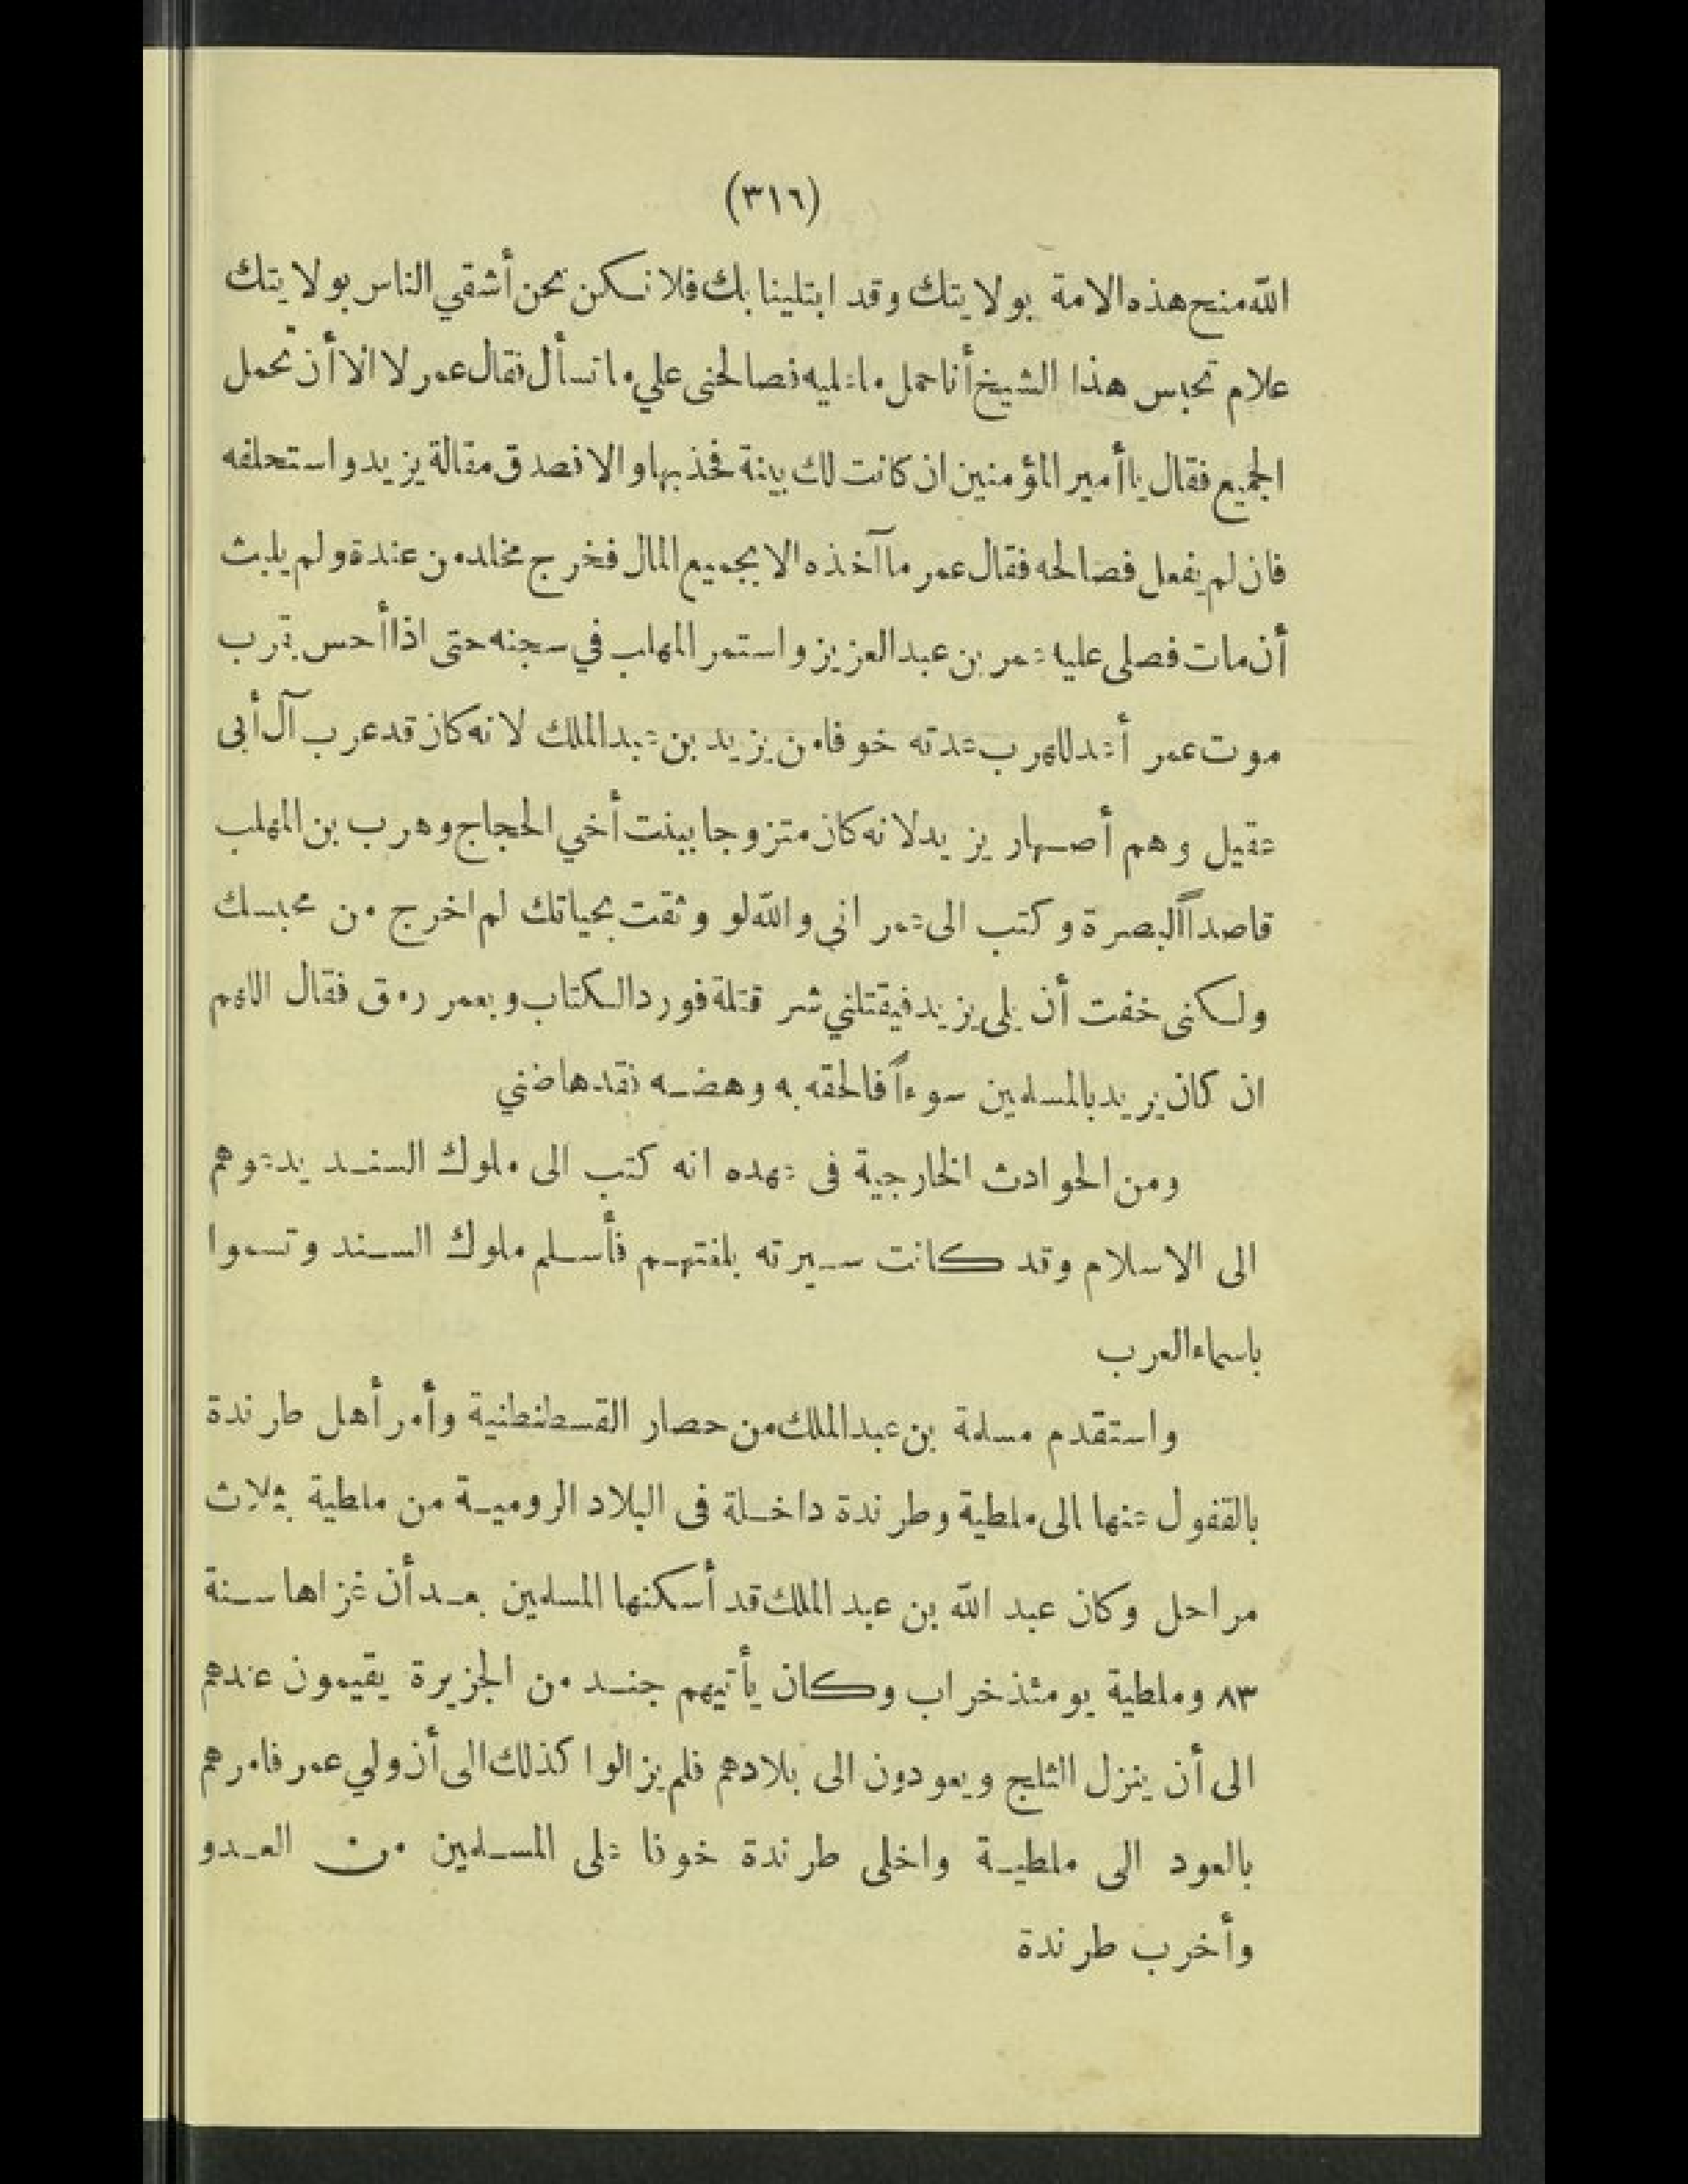 (٣١٦)
الله منح هذه الامة بولايتك وقد ابتلينا بك فلا نكن نحن أشقي الناس بولايتك
علام تحبس هذا الشيخ أنا احمل ما عليه فصالحني علي ما تسأل فقال عمر لا الا أن تحمل
الجميع فقال يا أمير المؤمنين ان كانت لك بينة فخذ بها والا فصدق مقالة يزيد واستحلفه
فان لم يفعل فصالحه فقال عمر ما آخذه الا بجميع المال فخرج مخلد من عندة ولم يلبث
أن مات فصلى عليه عمر بن عبد العزيز واستمر المهلب في سجنه حتى اذا أحس بقرب
موت عمر أعد للهرب عدته خوفا من يزيد بن عبد الملك لانه كان قد عرب آل أبى
عقيل وهم أصهار يزيد لانه كان متزوجا ببنت أخي الحجاج وهرب بن المهلب
قاصداً البصرة وكتب الى عمر اني والله لو وثقت بحياتك لم اخرج من محبسك
ولكنى خفت أن يلى يزيد فيقتلني شر قتلة فورد الكتاب وبعمر رمق فقال اللهم
ان كان يريد بالمسلمين سوءاً فالحقه به وهضه فقد هاضني
ومن الحوادث الخارجية فى عهده انه كتب الى ملوك السند يدعوهم
الى الاسلام وقد كانت سيرته بلغتهم فأسلم ملوك السند وتسموا
باسماء العرب
واستقدم مسلمة بن عبد الملك من حصار القسطنطنية وأمر أهل طرندة
بالقفول عنها الى ملطية وطرندة داخلة فى البلاد الرومية من ملطية بثلاث
مراحل وكان عبد الله بن عبد الملك قد أسكنها المسلمين بعد أن غزاها سنة
٨٣ وملطية يومئذ خراب وكان يأتيهم جند من الجزيرة يقيمون عندهم
الى أن ينزل الثلج ويعودون الى بلادهم فلم يزالوا كذلك الى أن ولي عمر فامرهم
بالعود الى ملطية واخلى طرندة خوفا على المسلمين من العدو
وأخرب طرندة